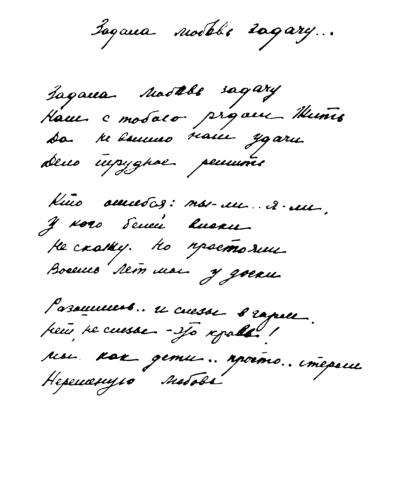 Задала любовь задачу...
Задала любовь задачу
Нам с тобою рядом жить
Да не вышло нам удачи
Дело трудное решить
Кто ошибся: ты-ли.. я-ли,
У кого белей виски
Не скажу. Но простояли
Восемь лет мы у доски
Разошлись.. и слезы в горле.
Нет, не слезы - это кровь!
Мы как дети.. просто.. стерли
Нерешеную любовь